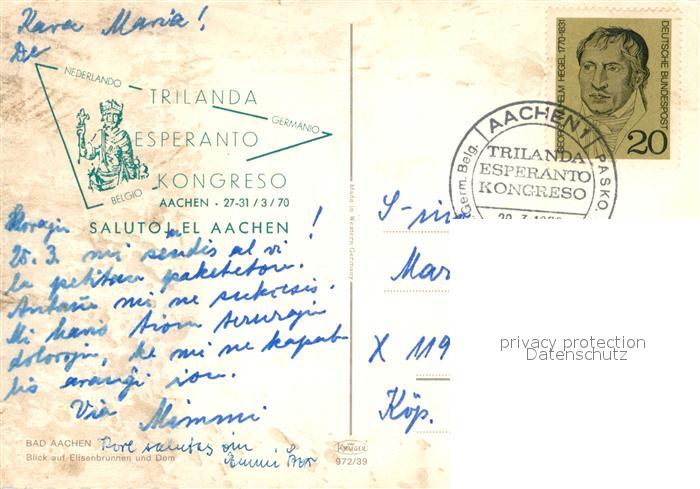 Kara Maria!
De
NEDERLANDO
TRILANDA
GERMANIO
ESPERANTO
KONGRESO
BELGIO
AACHEN · 27-31/3/70
SALUTOJ EL AACHEN !
25.3. mi sendis al vi
la petitan paketeton.
Antaŭe mi ne sukcesis.
Mi havis tiom terurajn
dolorojn, ke mi ne kapab-
lis aranĝi ion.
Via Mimmi
salutas vin
BAD AACHEN
Blick auf Elisenbrunnen und Dom
KRÜGER
972/39
Made in Western Germany
GEORG WILHELM HEGEL 1770-1831
DEUTSCHE BUNDESPOST
20
AACHEN 1
Germ. Belg.
PASKO
TRILANDA
ESPERANTO
KONGRESO
S-ino
Mar
X 119
Köp.
privacy protection
Datenschutz